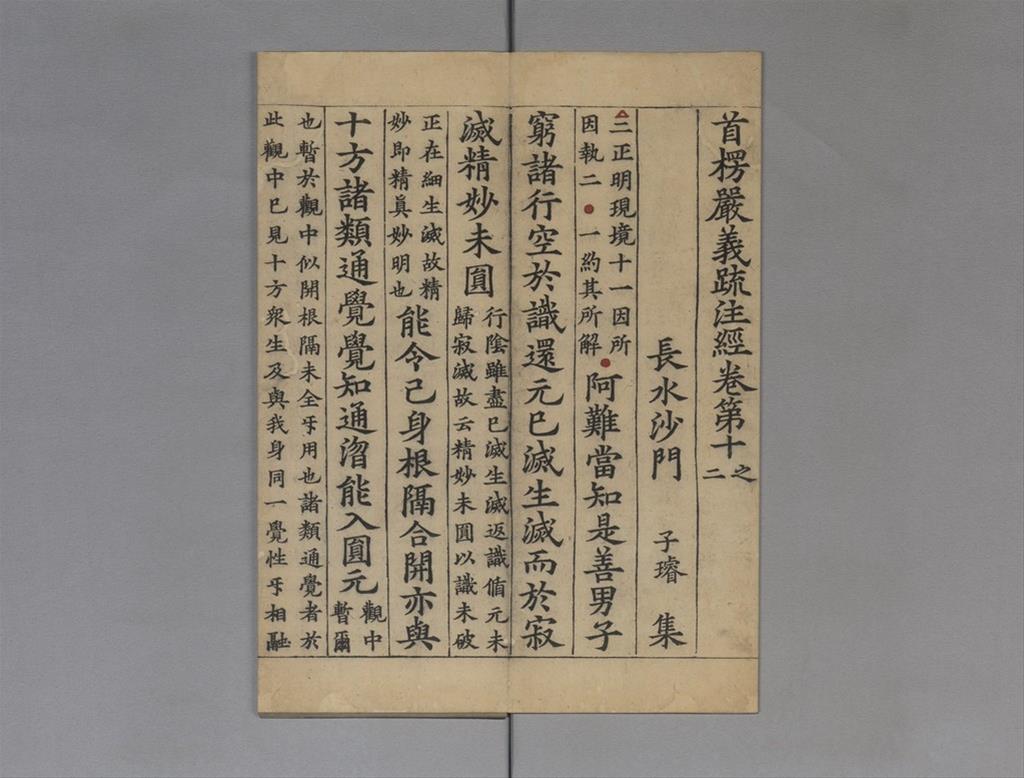 首楞嚴義疏注經卷第十之二
長水沙門 子璿 集
三正明現境十一因所
因執二 一約其所解
阿難當知是善男子
窮諸行空於識還元已滅生滅而於寂
滅精妙未圓
行陰雖盡已滅生滅返識循元未
歸寂滅故云精妙未圓以識未破
正在細生滅故精
妙即精眞妙明也
能令己身根隔合開亦與
十方諸類通覺覺知通㴐能入圓元
觀中
暫爾
也暫於觀中似開根隔未全𠄔用也諸類通覺者於
此觀中已見十方衆生及與我身同一覺性𠄔相融